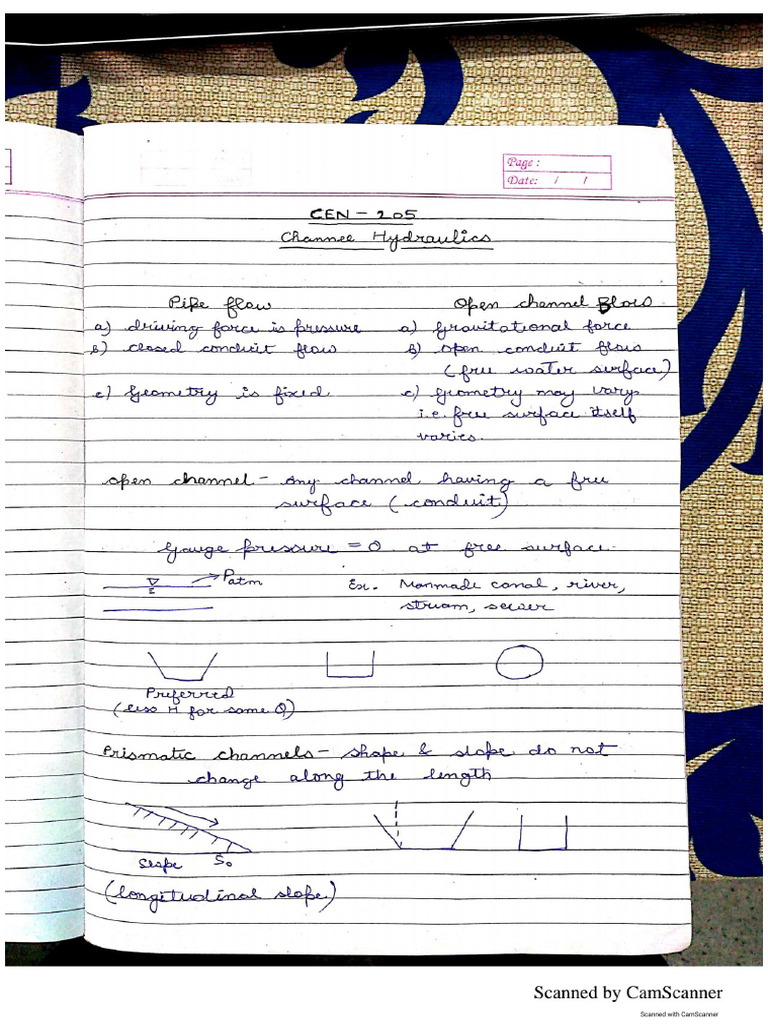 Page :
Date: / /
CEN - 205
Channel Hydraulics
Pipe flow Open channel Flow
a) driving force is pressure a) Gravitational force
b) closed conduit flow b) open conduit flow
(free water surface)
c) Geometry is fixed. c) geometry may vary
i.e. free surface itself
varies.
open channel - any channel having a free
surface (conduit)
Gauge pressure = 0 at free surface
Patm Ex. Manmade canal, river,
stream, sewer
Preferred
(less H for same Q)
Prismatic channels - shape & slope do not
change along the length
Slope S₀
(longitudinal slope)
Scanned by CamScanner
Scanned with CamScanner